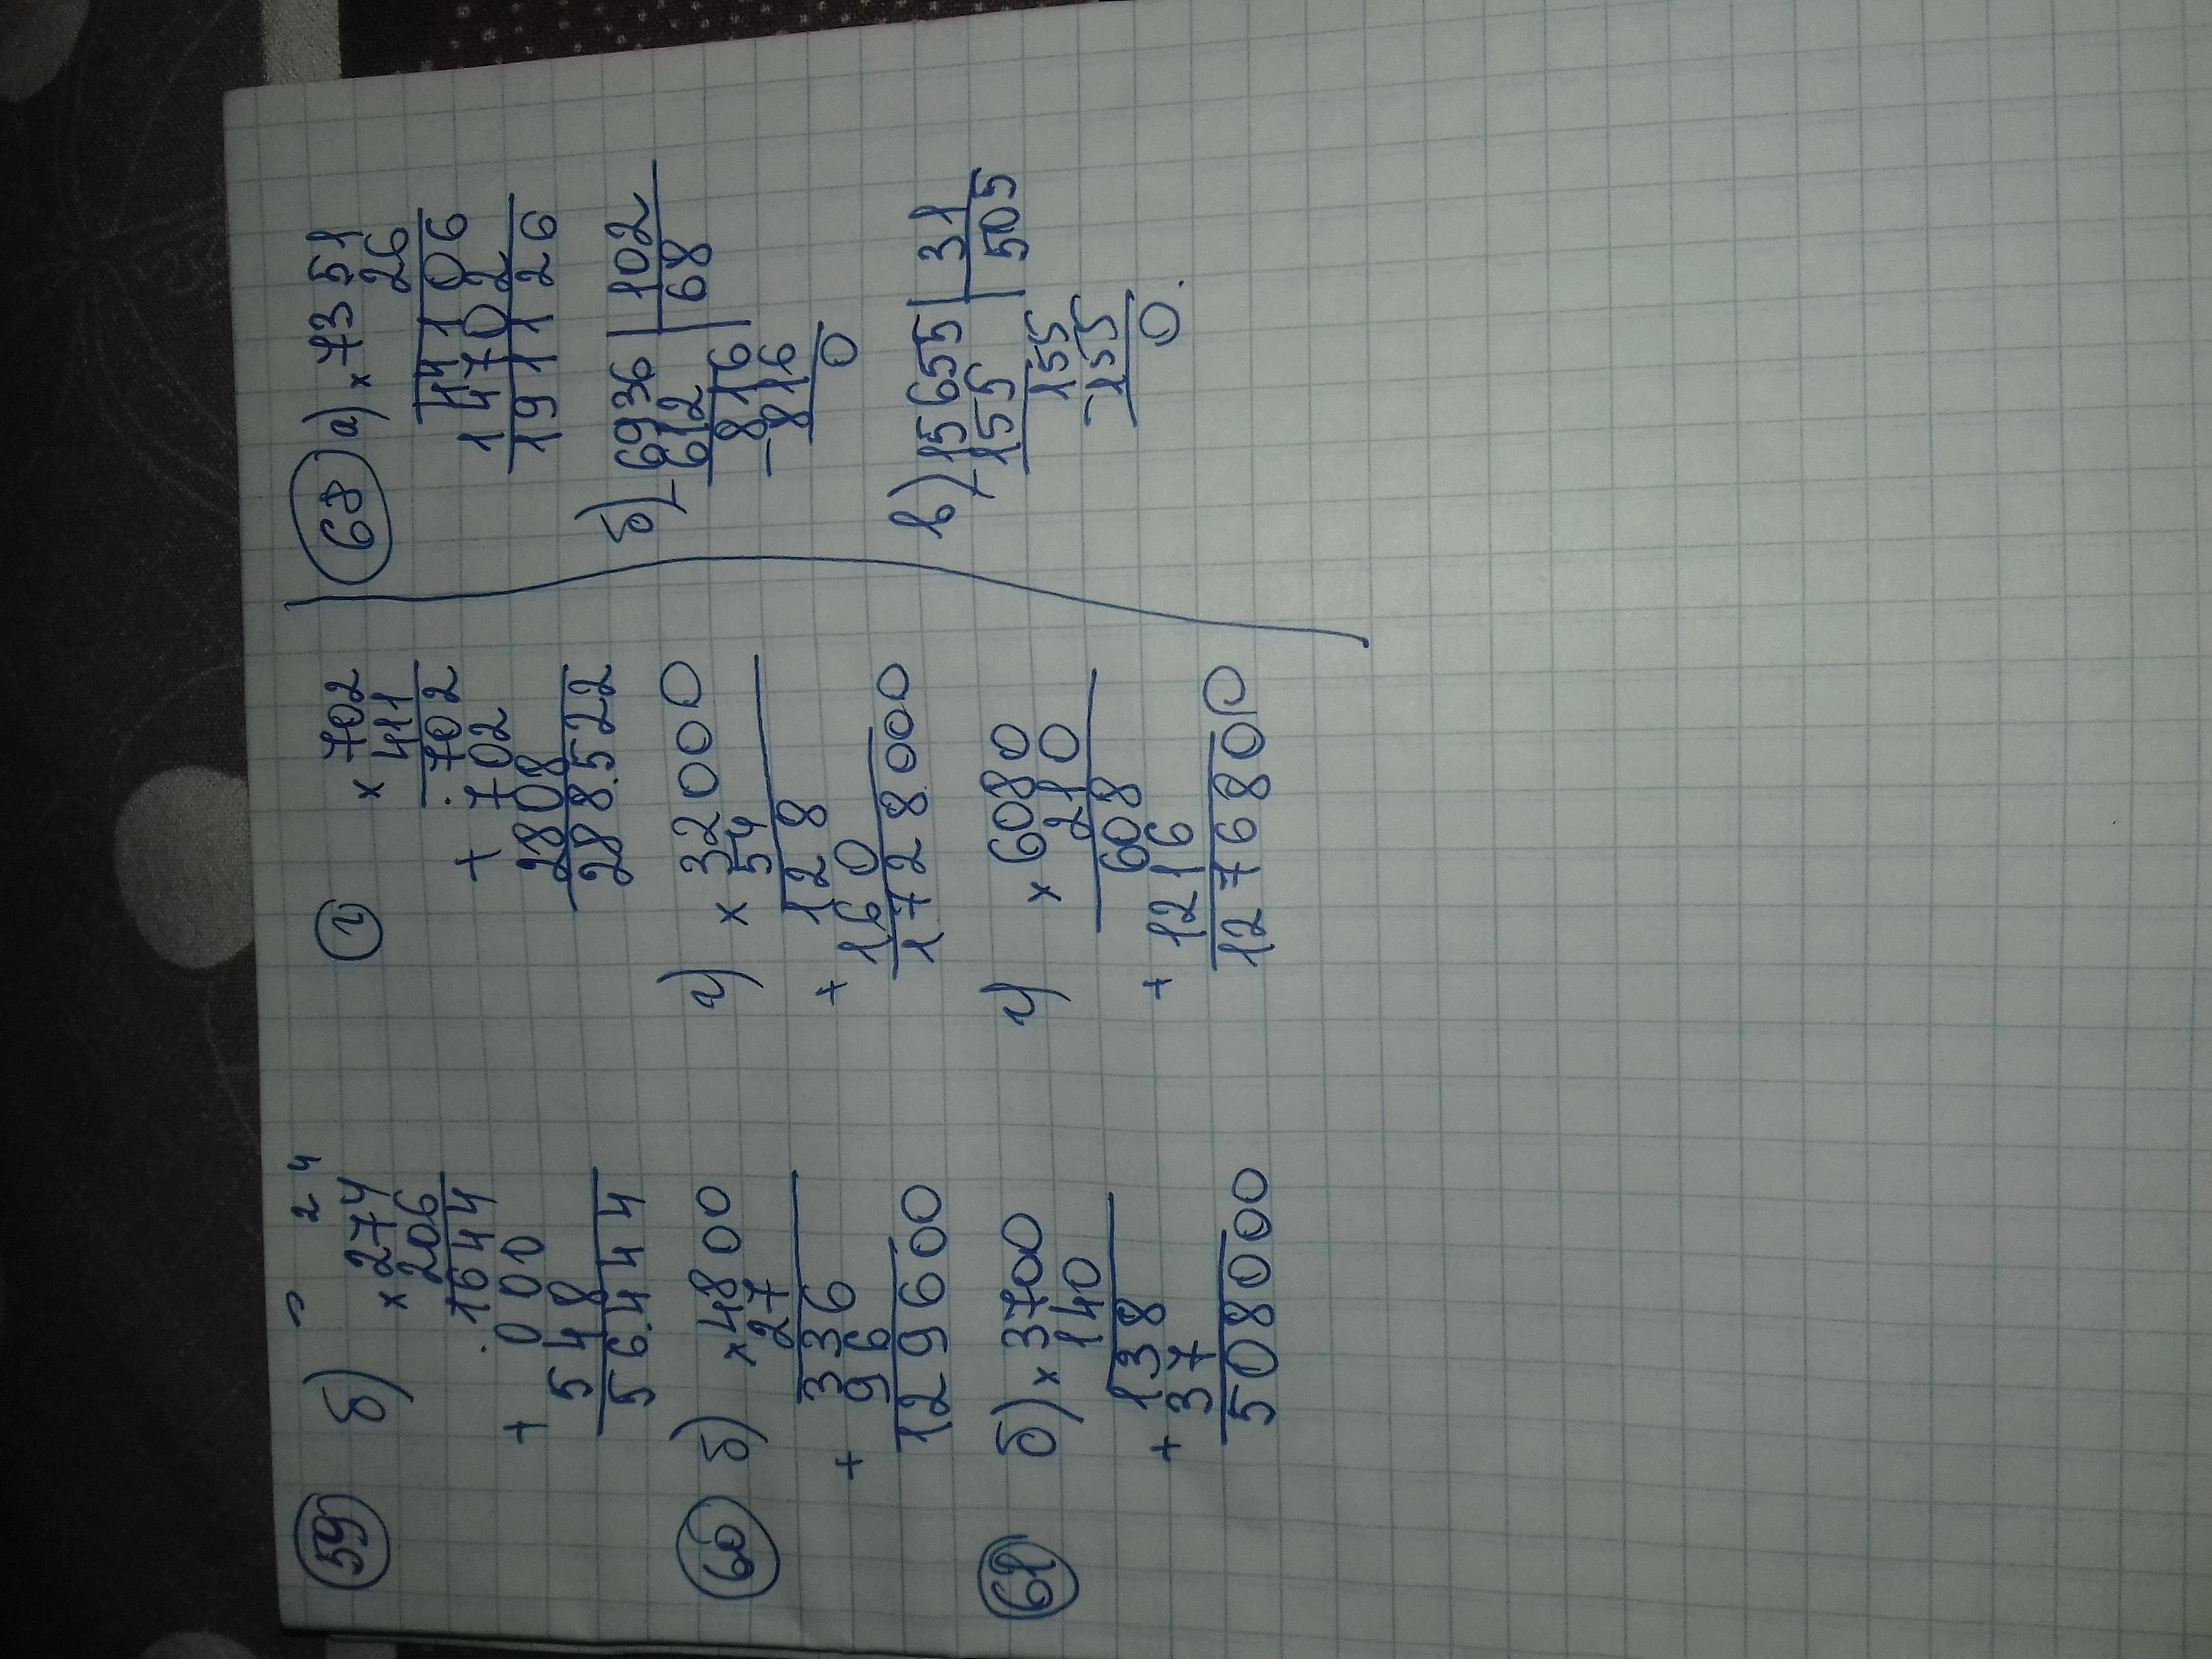 59 б) 2 4
× 274
206
1644
+ 000
548
56.444
г × 702
411
702
+ 702
2808
288.522
60 б) × 4800
27
336
+ 96
129600
г) × 32000
54
128
+ 160
1728000
61 б) × 3700
140
138
+ 37
508000
г) × 6080
210
608
+ 1216
1276800
68 а) × 7351
26
44106
14702
191126
б) - 6936 | 102
612 | 68
816
- 816
0
в) - 15655 | 31
155 | 505
155
- 155
0.